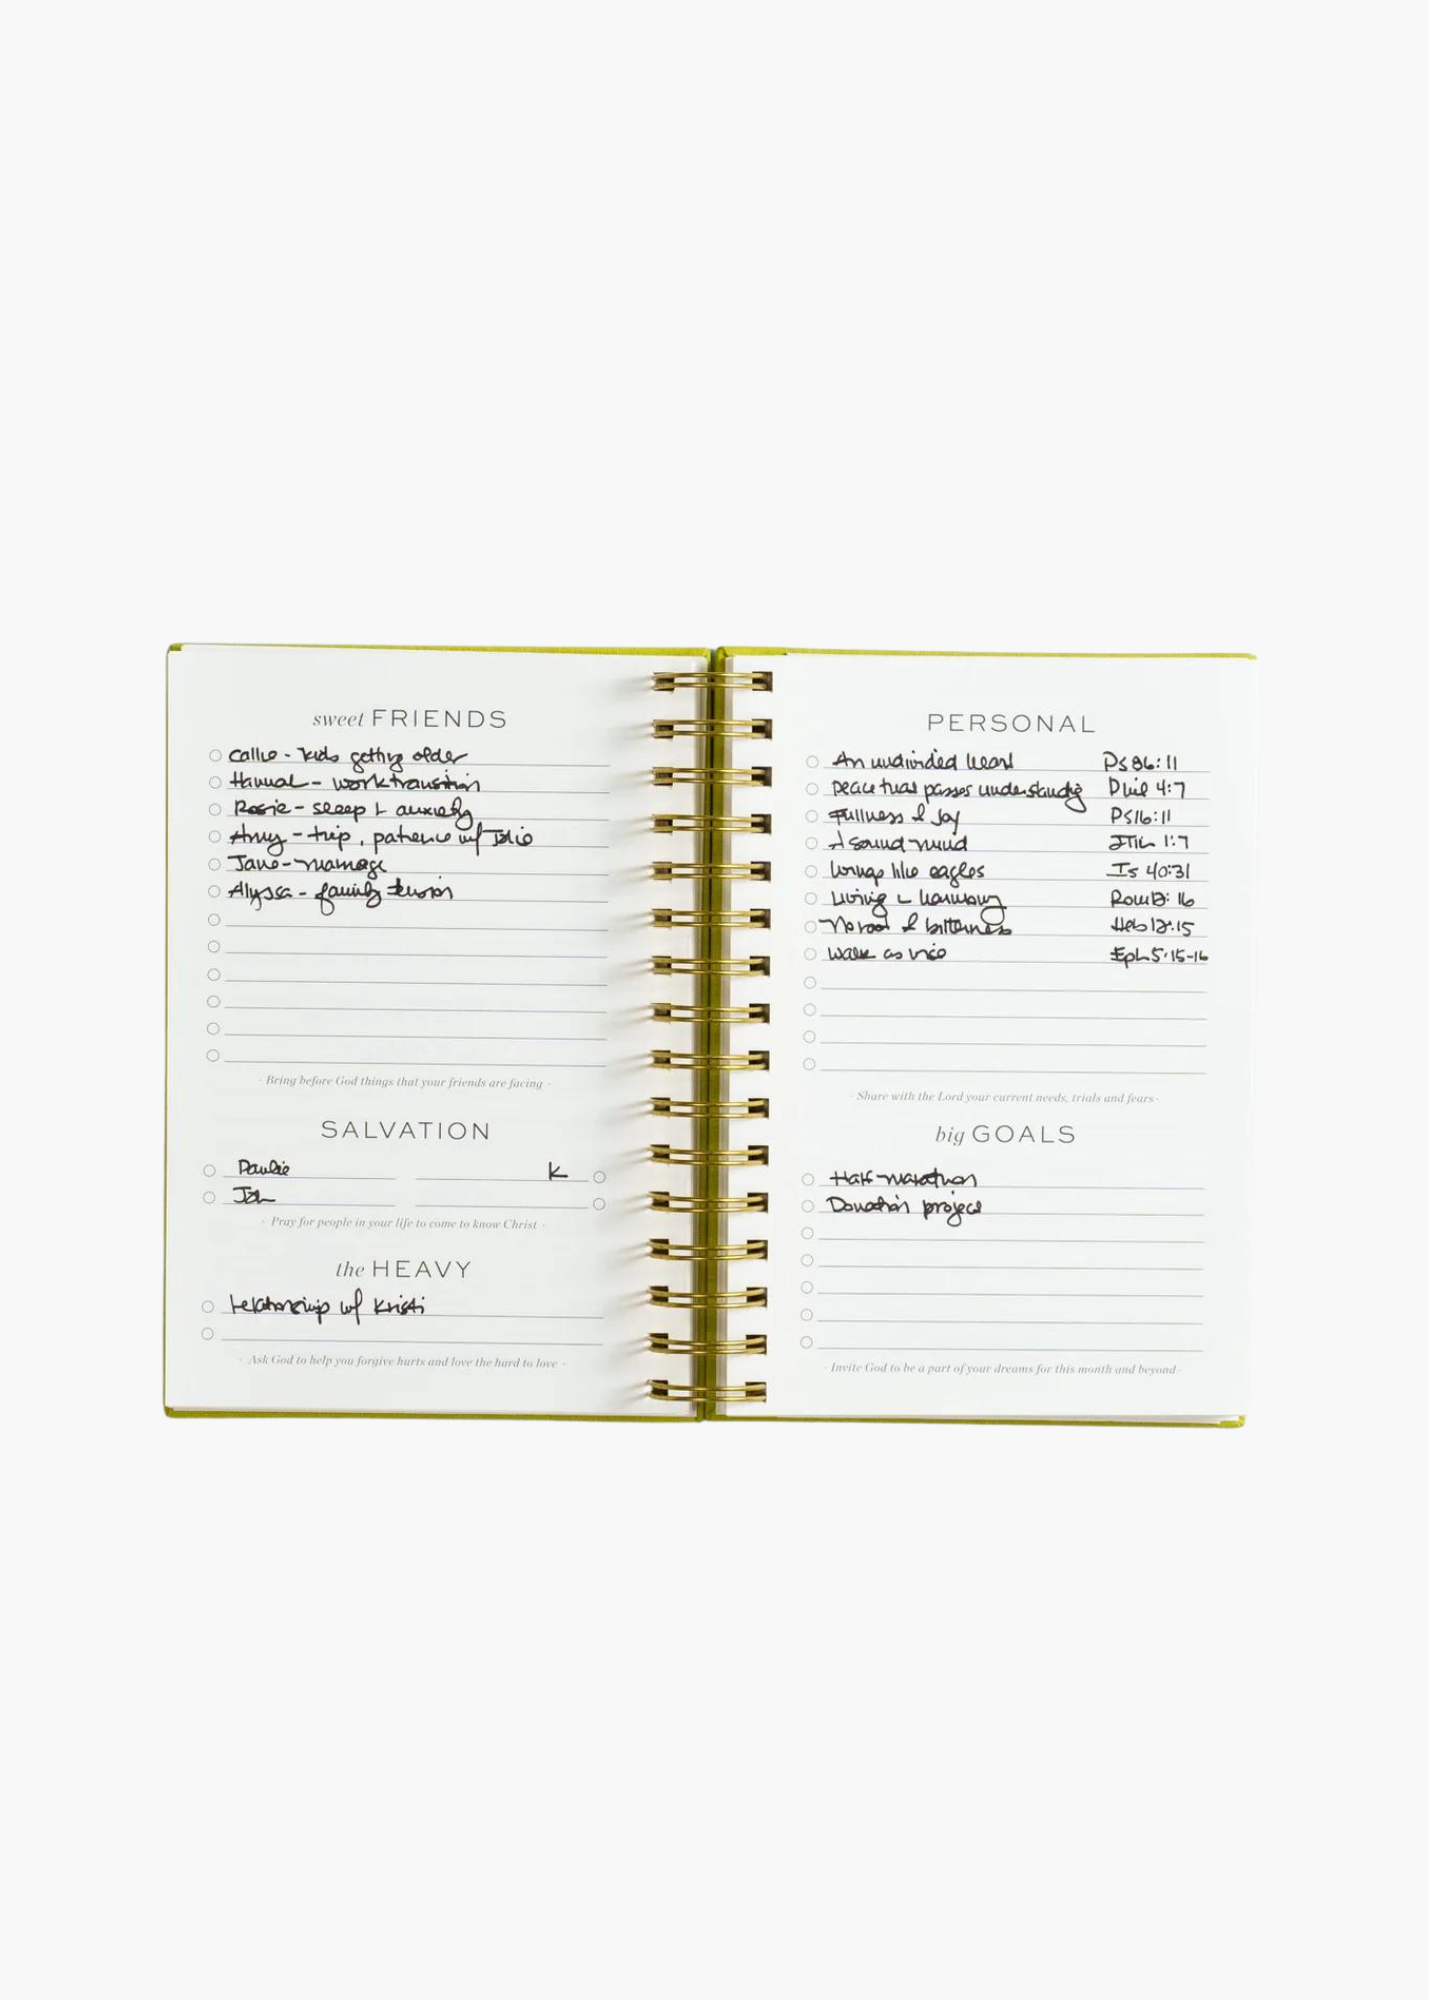 sweet FRIENDS
Callie - kids getting older
Hannah - work transition
Rosie - sleep + anxiety
Amy - trip, patience w/
Jane - marriage
Alyssa - family tension
· Bring before God things that your friends are facing ·
SALVATION
Paulie K
· Pray for people in your life to come to know Christ ·
the HEAVY
relationship w/ Kristi
· Ask God to help you forgive hurts and love the hard to love ·
PERSONAL
An undivided heart Ps 86:11
peace that passes understanding Phil 4:7
Fullness of Joy Ps 16:11
A sound mind 2Tim 1:7
wings like eagles Is 40:31
Living in harmony Rom 12:16
No root of bitterness Heb 12:15
walk as wise Eph 5:15-16
· Share with the Lord your current needs, trials and fears ·
big GOALS
Half-marathon
Donation project
· Invite God to be a part of your dreams for this month and beyond ·